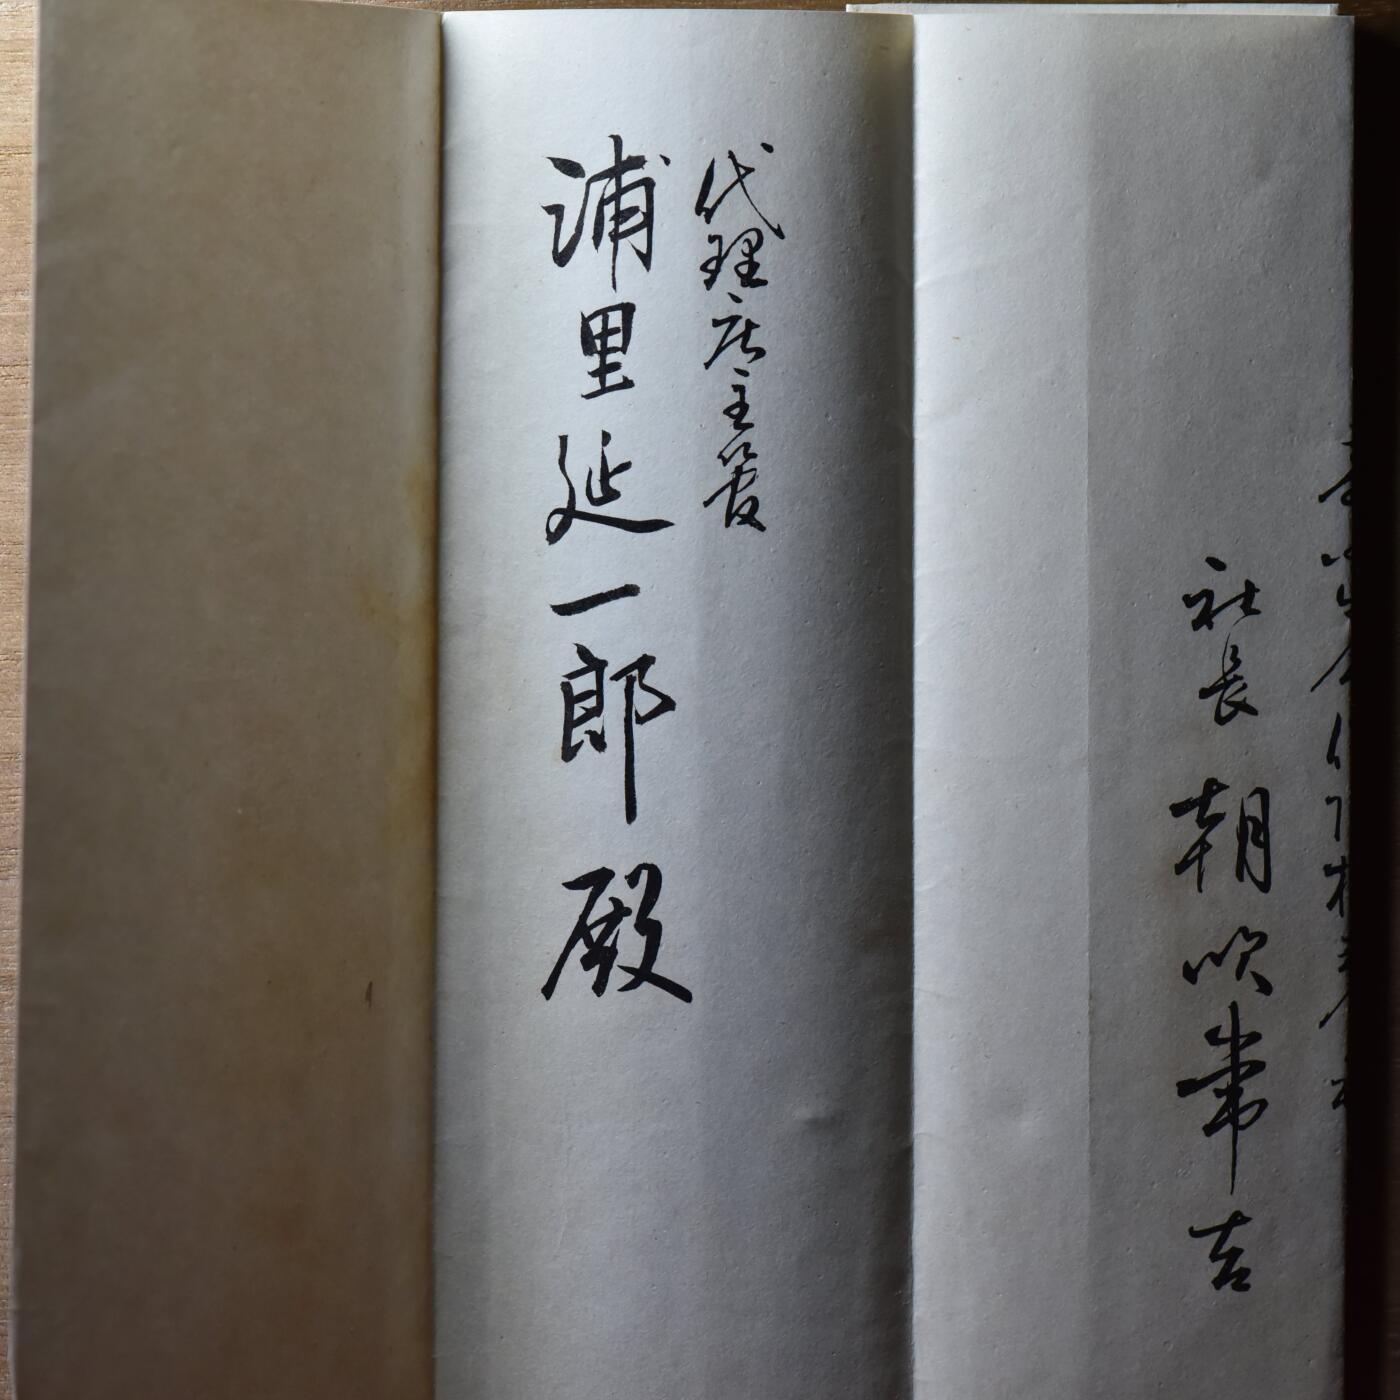 社長 朝吹常吉
代理店主管
浦里延一郎殿